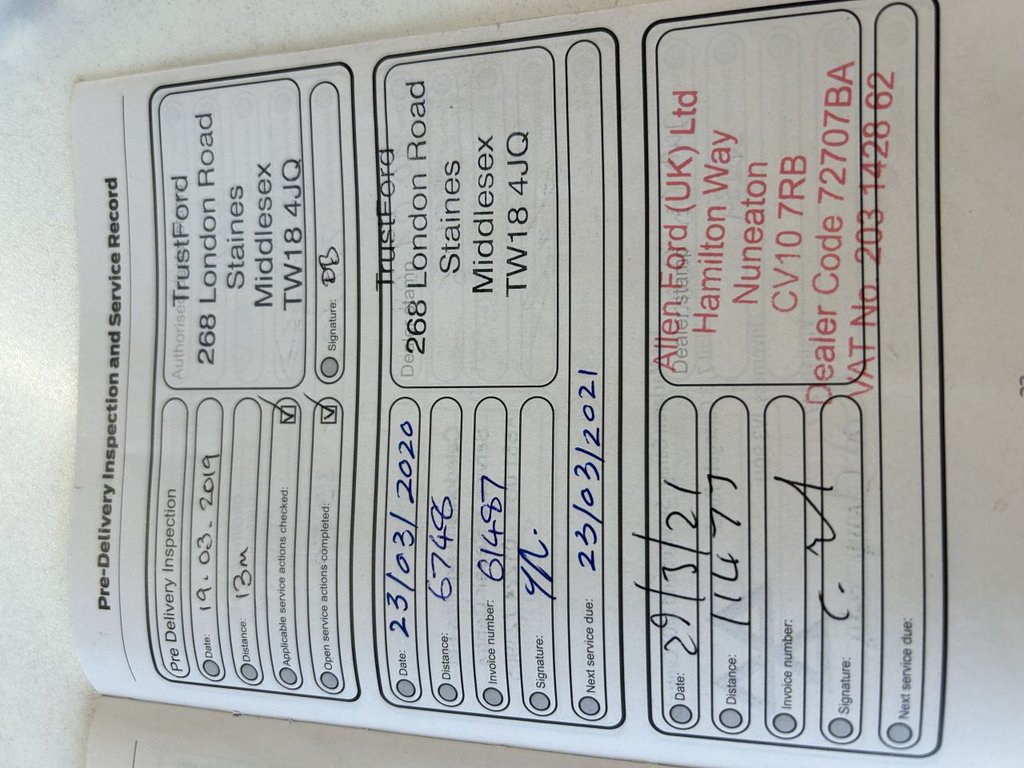 Pre-Delivery Inspection and Service Record
Pre Delivery Inspection
Date: 19.03.2019
Distance: 13m
Applicable service actions checked:
Open service actions completed:
Signature:
Authorise
TrustFord
268 London Road
Staines
Middlesex
TW18 4JQ
Date: 23/03/2020
Distance: 6748
Invoice number: 61487
Signature:
Next service due: 23/03/2021
TrustFord
268 London Road
Staines
Middlesex
TW18 4JQ
Date: 29/3/21
Distance: 11477
Invoice number:
Signature:
Next service due:
Dealer stamp
Allen Ford (UK) Ltd
Hamilton Way
Nuneaton
CV10 7RB
Dealer Code 72707BA
VAT No. 203 1428 62